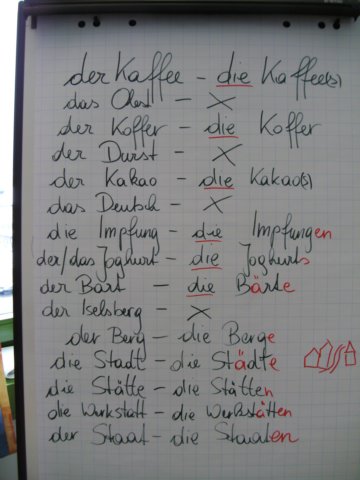 der Kaffee - die Kaffee(s)
das Obst - X
der Koffer - die Koffer
der Durst - X
der Kakao - die Kakao(s)
das Deutsch - X
die Impfung - die Impfungen
der/das Joghurt - die Joghurts
der Bart - die Bärte
der Iselsberg - X
der Berg - die Berge
die Stadt - die Städte
die Stätte - die Stätten
die Werkstatt - die Werkstätten
der Staat - die Staaten